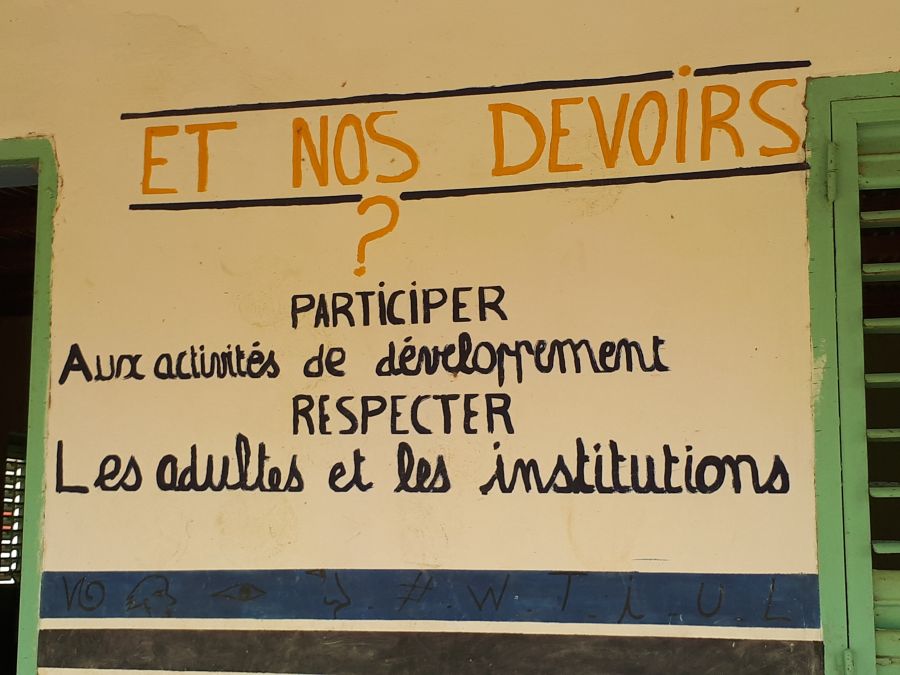 ET NOS DEVOIRS
?
PARTICIPER
Aux activités de développement
RESPECTER
Les adultes et les institutions
# W T i U L